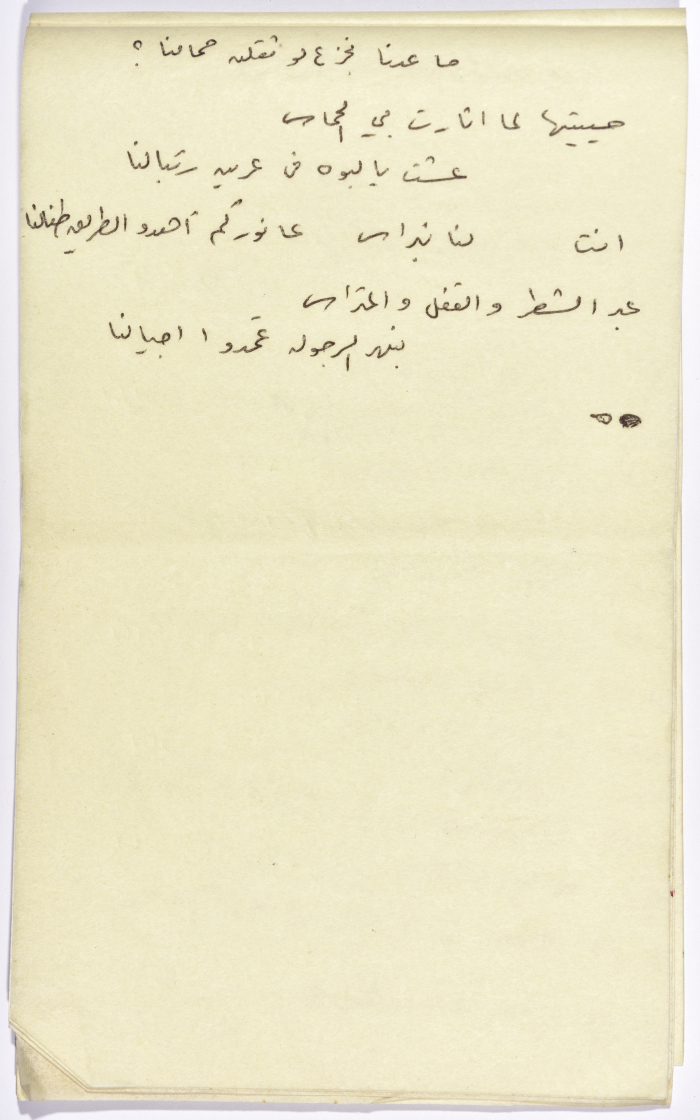 ما عدنا نجزع لو ثقلت حمامنا ؟
حييتها لما اثارت بي الحماس
عشت يا لبوه في عرين رئبالنا
انت لنا نبراس عا نوركم أهدوا الطريق طفالنا
عبر الشط والقفل والمتراس
بنهر الرجوله عمدوا اجيالنا